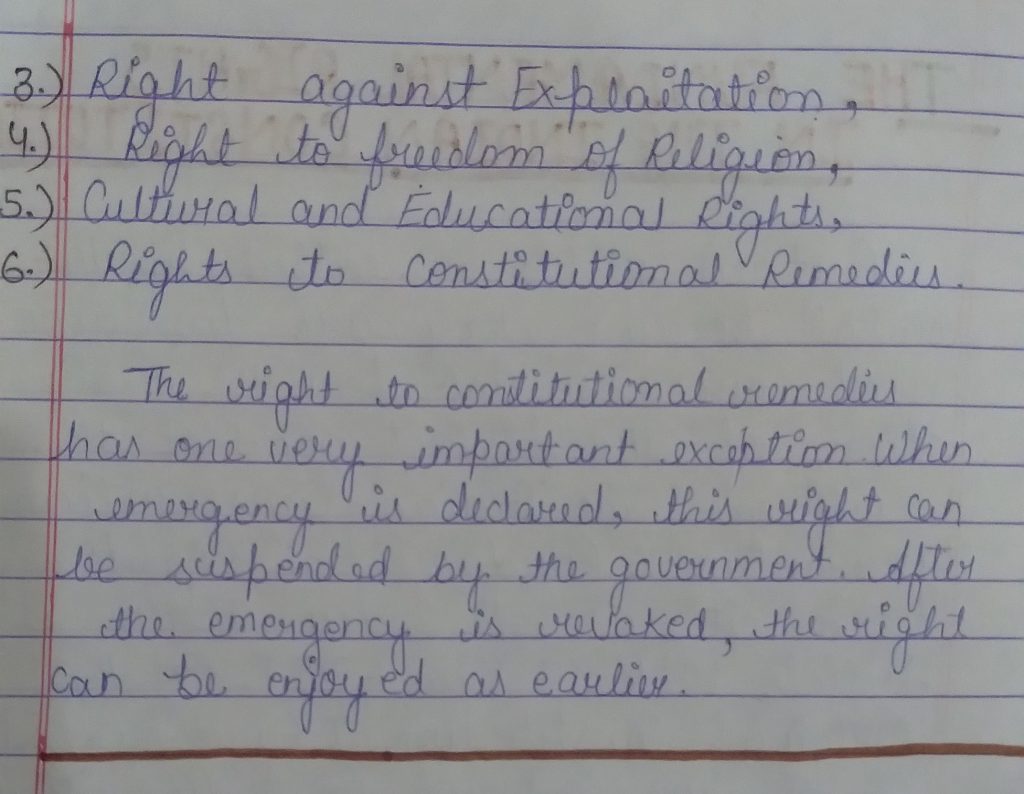 3.) Right against Explaitation,
4.) Right to freedom of Religion,
5.) Cultural and Educational Rights,
6.) Rights to Constitutional Remedies.
The right to contitutional remedies
has one very impartant exception. When
emergency is declared, this right can
be suspended by the government. After
the emergency is revaked, the right
can be enjoyed as earlier.